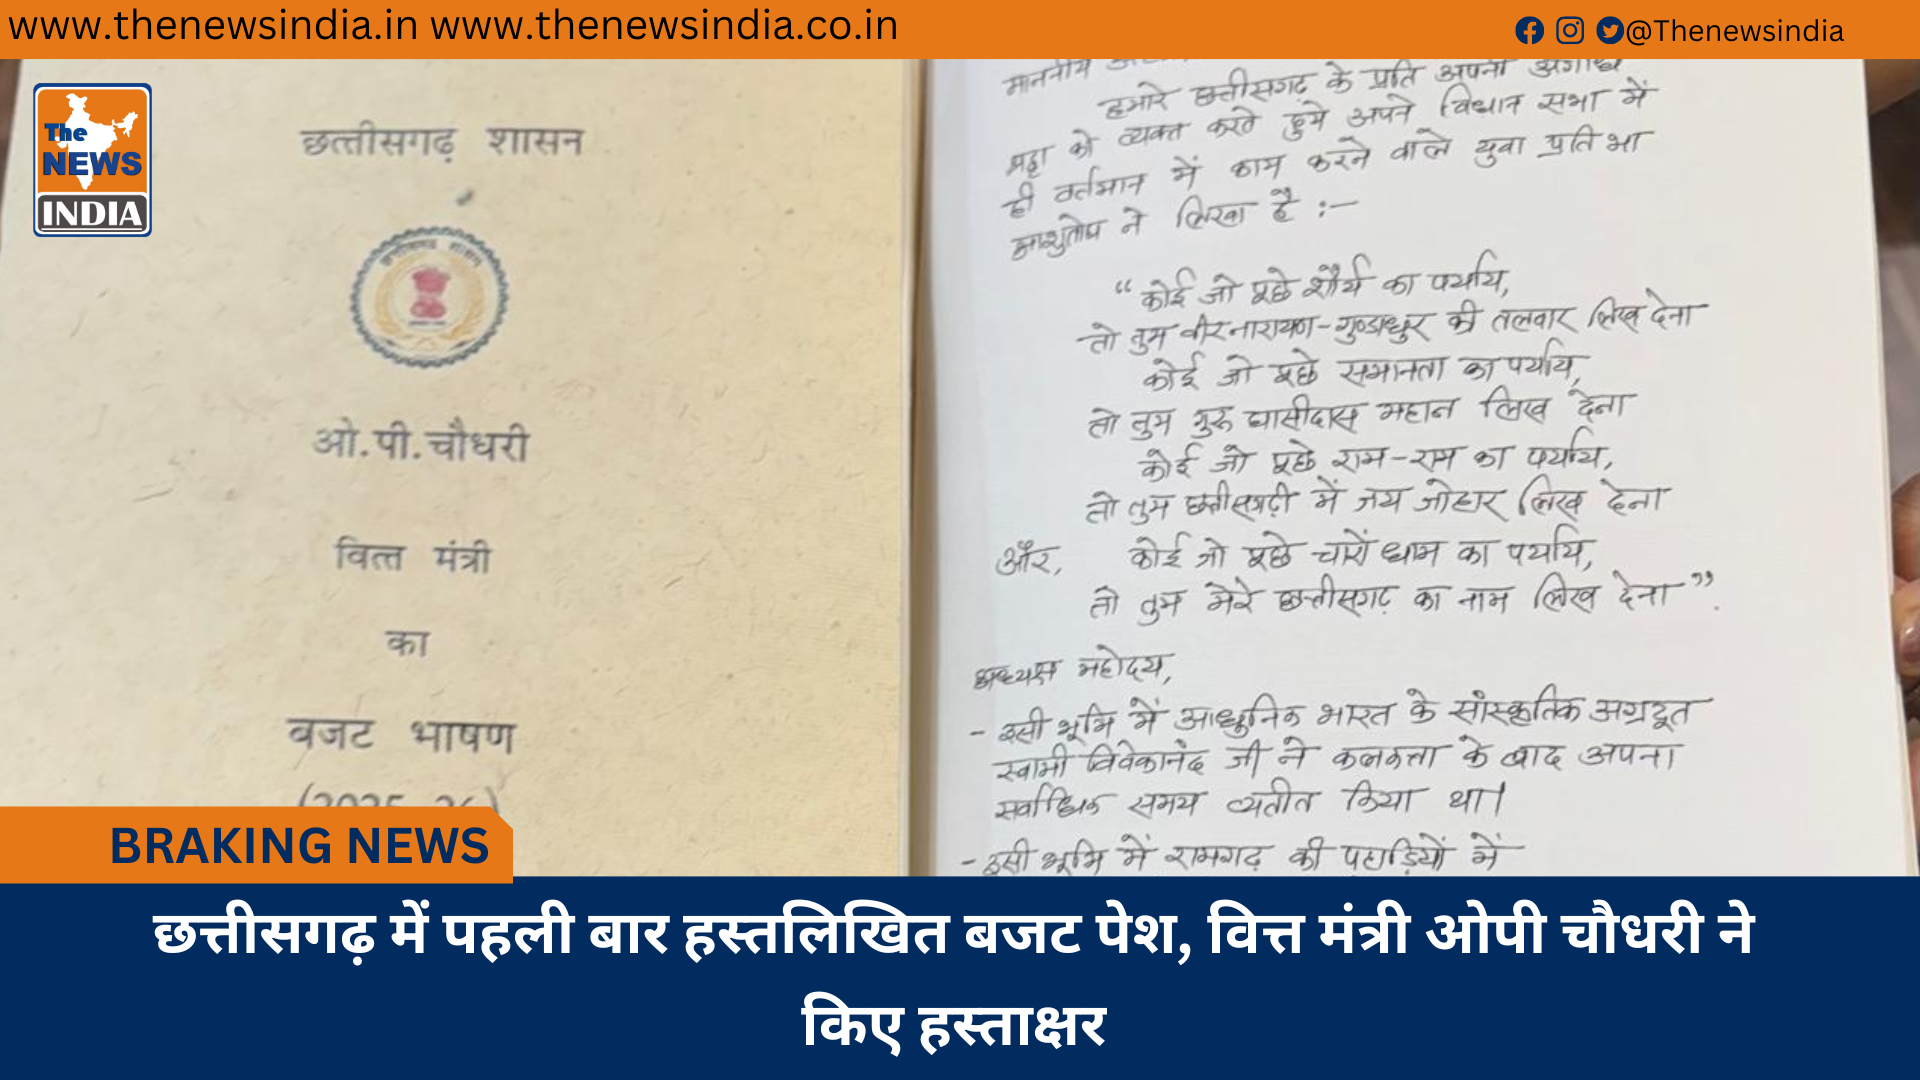 www.thenewsindia.in www.thenewsindia.co.in
@Thenewsindia
The
NEWS
INDIA
छत्तीसगढ़ शासन
ओ.पी.चौधरी
वित्त मंत्री
का
बजट भाषण
(2025-26)
माननीय
हमारे छत्तीसगढ़ के प्रति अपनी अगाध
को व्यक्त करते हुये अपने विधान सभा में
ही वर्तमान में काम करने वाले युवा प्रतिभा
आशुतोष ने लिखा है :-
“ कोई जो पूछे शौर्य का पर्याय,
तो तुम वीरनारायण-गुण्डाधुर की तलवार लिख देना
कोई जो पूछे समानता का पर्याय,
तो तुम गुरु घासीदास महान लिख देना
कोई जो पूछे राम-राम का पर्याय,
तो तुम छत्तीसगढ़ी में जय जोहार लिख देना
और, कोई जो पूछे चारों धाम का पर्याय,
तो तुम मेरे छत्तीसगढ़ का नाम लिख देना ”.
अध्यक्ष महोदय,
- इसी भूमि में आधुनिक भारत के सांस्कृतिक अग्रदूत
स्वामी विवेकानंद जी ने कलकत्ता के बाद अपना
सर्वाधिक समय व्यतीत किया था।
- इसी भूमि में रामगढ़ की पहाड़ियों में
BRAKING NEWS
छत्तीसगढ़ में पहली बार हस्तलिखित बजट पेश, वित्त मंत्री ओपी चौधरी ने
किए हस्ताक्षर